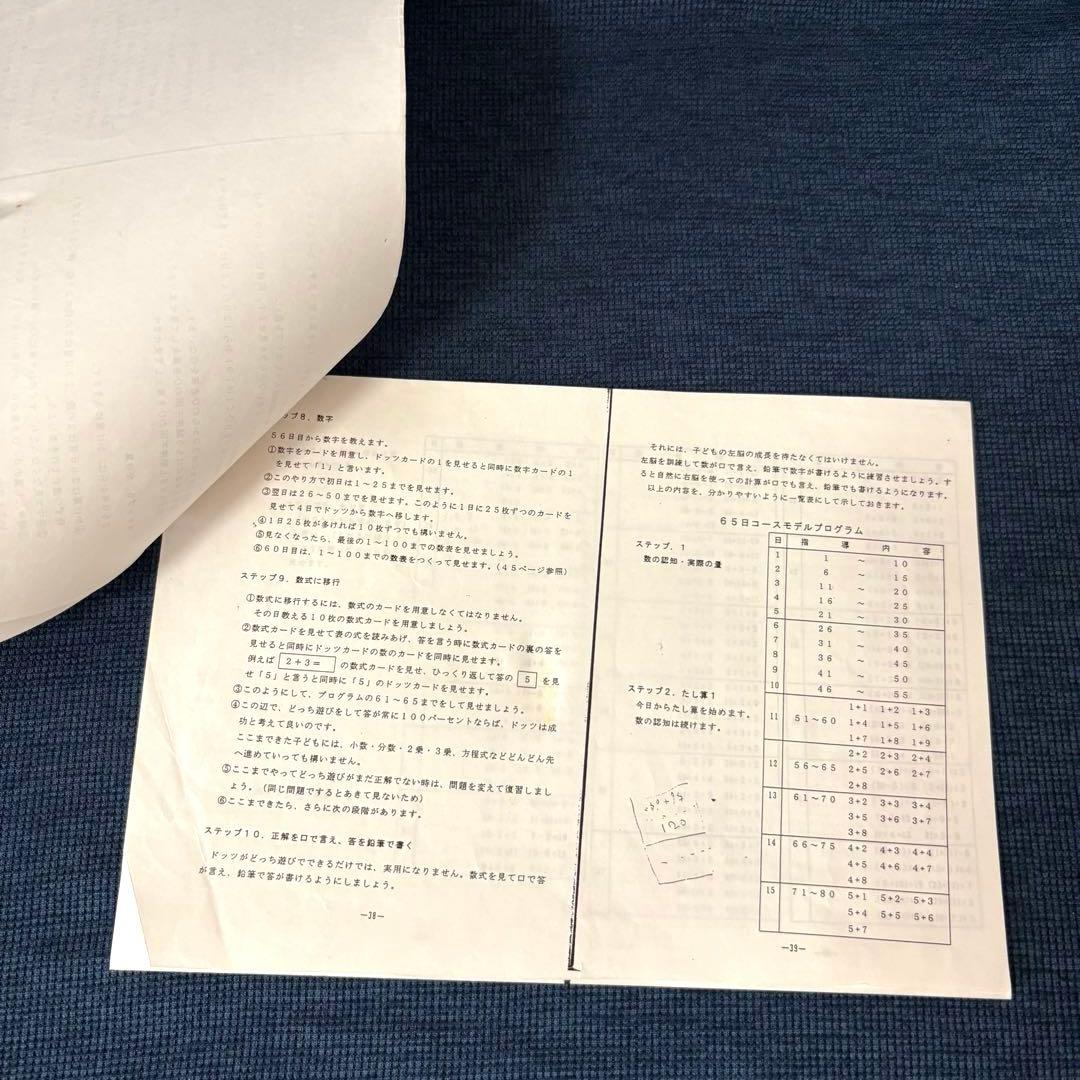 ップ８．数字
５６日目から数字を教えます。
①数字をカードを用意し、ドッツカードの１を見せると同時に数字カードの１
を見せて「１」と言います。
②このやり方で初日は１～２５までを見せます。
③翌日は２６～５０までを見せます。このように１日に２５枚ずつのカードを
見せて４日でドッツから数字へ移します。
④１日２５枚が多ければ１０枚ずつでも構いません。
⑤見なくなったら、最後の１～１００までの数表を見せましょう。
⑥６０日目は、１～１００までの数表をつくって見せます。（４５ページ参照）
ステップ９．数式に移行
①数式に移行するには、数式のカードを用意しなくてはなりません。
その日教える１０枚の数式カードを用意しましょう。
②数式カードを見せて表の式を読みあげ、答を言う時に数式カードの裏の答を
見せると同時にドッツカードの数のカードを同時に見せます。
例えば ２＋３＝ の数式カードを見せ、ひっくり返して答の ５ を見
せ「５」と言うと同時に「５」のドッツカードを見せます。
③このようにして、プログラムの６１～６５までをして見せましょう。
④この辺で、どっち遊びをして答が常に１００パーセントならば、ドッツは成
功と考えて良いのです。
ここまできた子どもには、小数・分数・２乗・３乗、方程式などどんどん先
へ進めていっても構いません。
⑤ここまでやってどっち遊びがまだ正解でない時は、問題を変えて復習しまし
ょう。（同じ問題ですするとあきて見ないため）
⑥ここまできたら、さらに次の段階があります。
ステップ１０．正解を口で言え、答を鉛筆で書く
ドッツがどっち遊びでできるだけでは、実用になりません。数式を見て口で答
が言え、鉛筆で答が書けるようにしましょう。
—38—
それには、子どもの左脳の成長を待たなくてはいけません。
左脳を訓練して数が口で言え、鉛筆で数字が書けるように練習させましょう。す
ると自然に右脳を使っての計算が口でも言え、鉛筆でも書けるようになります。
以上の内容を、分かりやすいように一覧表にして示しておきます。
６５日コースモデルプログラム
ステップ．１
数の認知・実際の量
日 指 導 内 容
1 1 ～ 10
2 6 ～ 15
3 11 ～ 20
4 16 ～ 25
5 21 ～ 30
6 26 ～ 35
7 31 ～ 40
8 36 ～ 45
9 41 ～ 50
10 46 ～ 55
ステップ２．たし算１
今日からたし算を始めます。
数の認知は続けます。
1+1 1+2 1+3
11 51～60 1+4 1+5 1+6
1+7 1+8 1+9
2+2 2+3 2+4
12 56～65 2+5 2+6 2+7
2+8
13 61～70 3+2 3+3 3+4
3+5 3+6 3+7
3+8
14 66～75 4+2 4+3 4+4
4+5 4+6 4+7
4+8
15 71～80 5+1 5+2 5+3
5+4 5+5 5+6
5+7
120
—39—